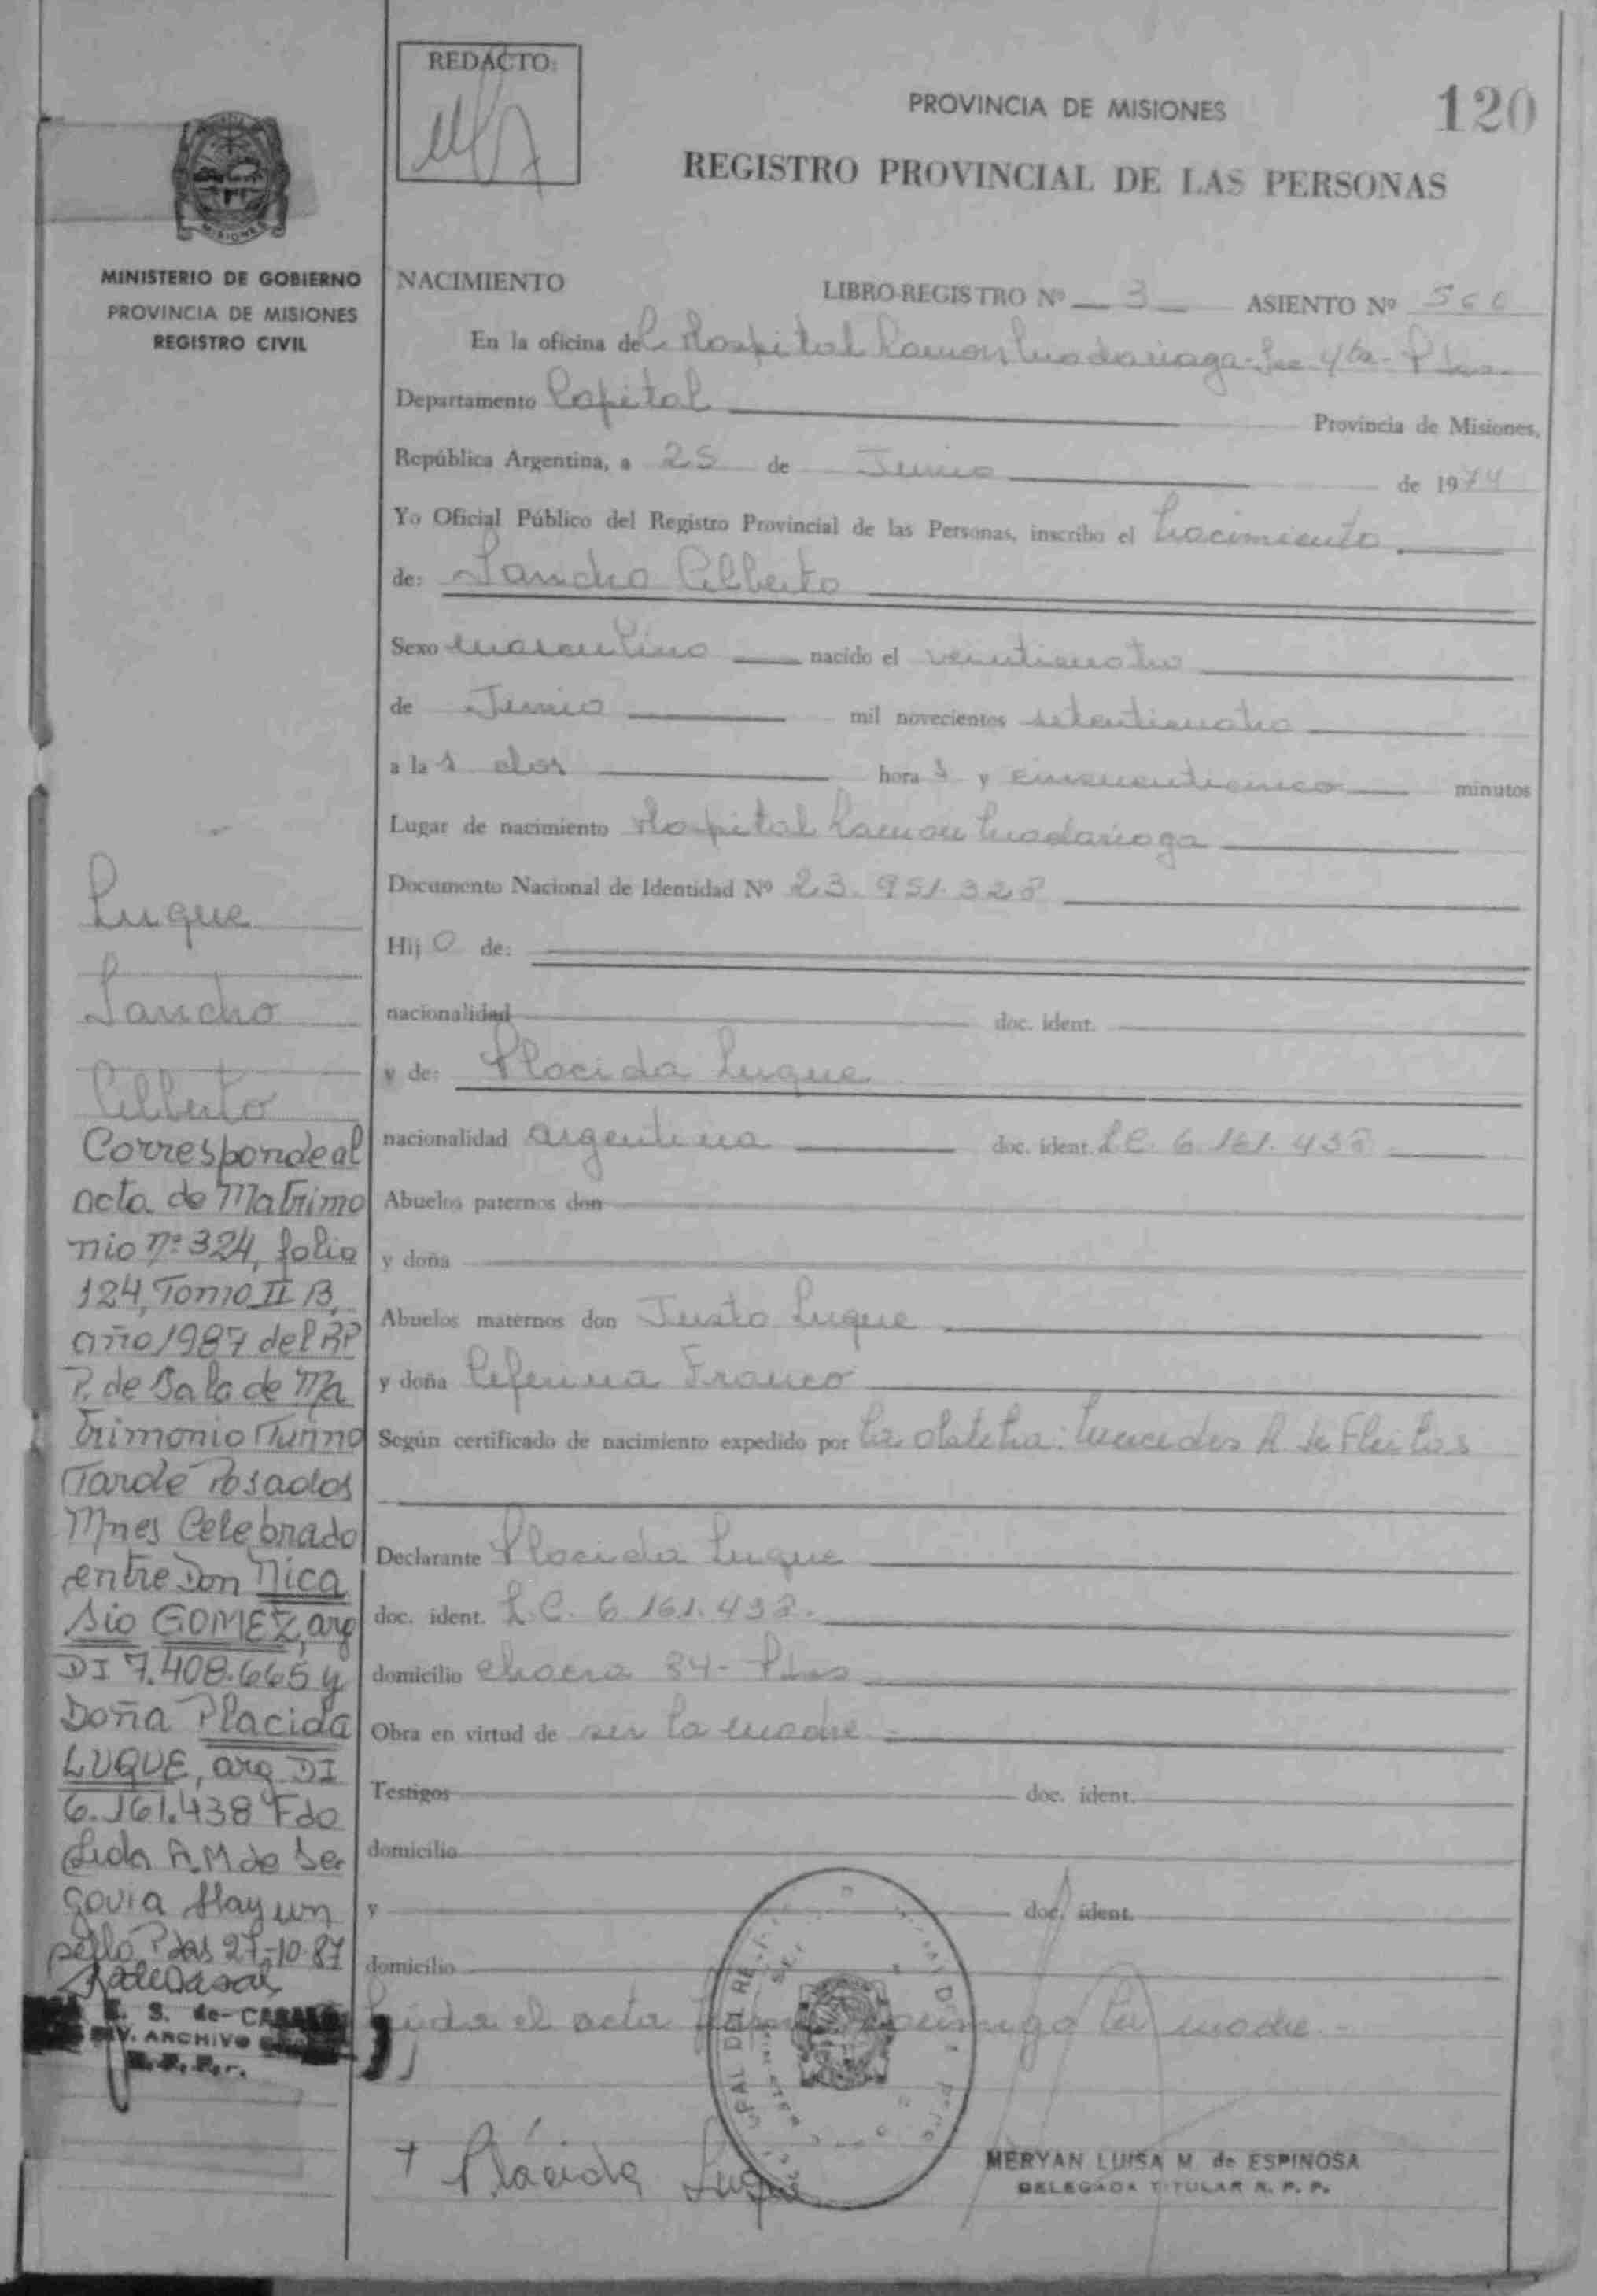 REDACTO:
PROVINCIA DE MISIONES
120
REGISTRO PROVINCIAL DE LAS PERSONAS
MISIONES
MINISTERIO DE GOBIERNO
PROVINCIA DE MISIONES
REGISTRO CIVIL
NACIMIENTO
LIBRO-REGISTRO Nº 3 ASIENTO Nº
En la oficina del Hospital Ramon Madariaga - Sec 4ta - Pdas
Departamento Capital Provincia de Misiones,
República Argentina, a 25 de Junio de 1974
Yo Oficial Público del Registro Provincial de las Personas, inscribo el nacimiento
de: Sandro Alberto
Sexo masculino nacido el veinticuatro
de Junio mil novecientos setenticuatro
a las dos horas y cincuenticinco minutos
Lugar de nacimiento Hospital Ramon Madariaga
Documento Nacional de Identidad Nº 23.951.328
Hijo de:
nacionalidad doc. ident.
y de: Placida Luque
nacionalidad argentina doc. ident. L.C. 6.161.438
Abuelos paternos don
y doña
Abuelos maternos don Justo Luque
y doña Ceferina Franco
Según certificado de nacimiento expedido por la obstetra: Mercedes R de Fleitas
Declarante Placida Luque
doc. ident. L.C. 6.161.438.
domicilio chacra 34- Pdas
Obra en virtud de ser la madre -
Testigos doc. ident.
domicilio
y doc. ident.
domicilio
Leida el acta firma conmigo la madre. -
+ Plácida Luque
MERYAN LUISA M de ESPINOSA
DELEGADA TITULAR R. P. P.
Luque
Sandro
Alberto
Corresponde al
acta de Matrimo
nio nº 324, folio
124, Tomo II B,
año 1987 del RP
P. de Sala de Ma
trimonio Turno
Tarde Posadas
Mnes Celebrado
entre Don Nica
sio GOMEZ, arg
DI 7.408.665 y
Doña Placida
LUQUE, arg DI
6.161.438 Fdo
Lida A.M de Se
govia Hay un
sello Pdas 27-10-87
E. S. de CASAL
DIV. ARCHIVO